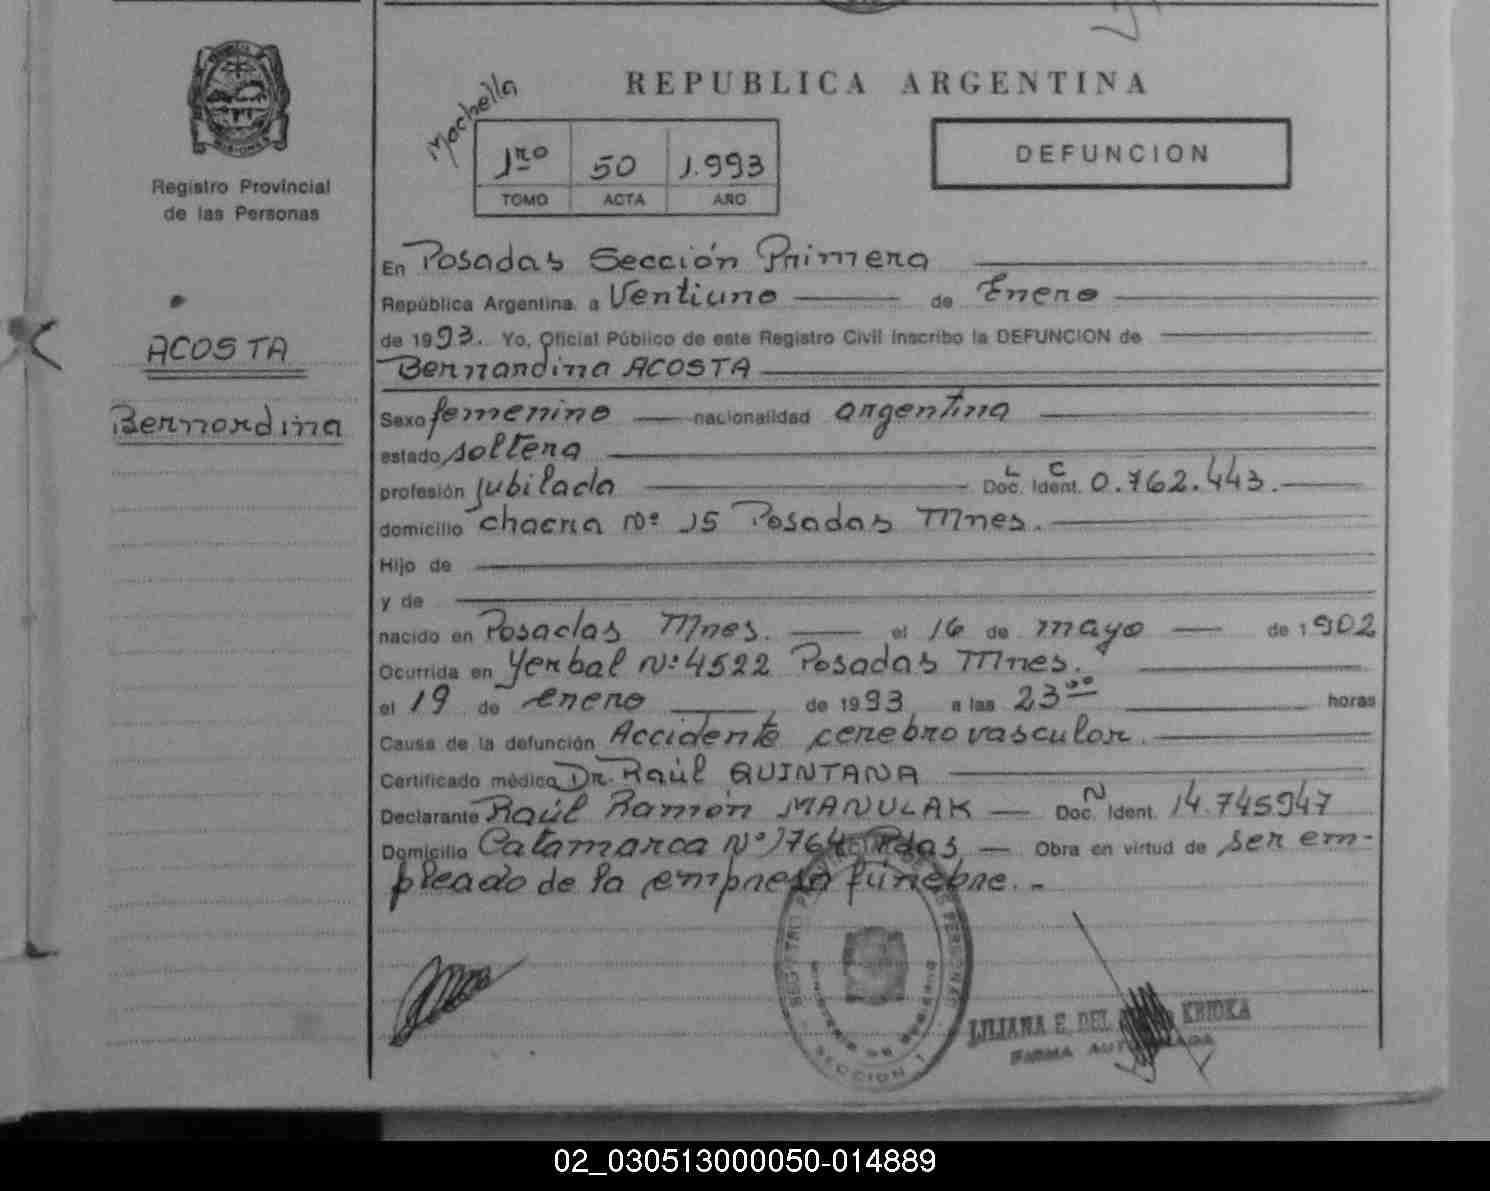 MISIONES
Registro Provincial
de las Personas
ACOSTA
Bernardina
REPUBLICA ARGENTINA
Mochella
1ro 50 1.993
TOMO ACTA AÑO
DEFUNCION
En Posadas Sección Primera
República Argentina, a Ventiuno de Enero
de 1993. Yo, Oficial Público de este Registro Civil inscribo la DEFUNCION de
Bernardina ACOSTA
Sexo femenino nacionalidad argentina
estado soltera
profesión jubilada Doc. Ident. L C 0.762.443.
domicilio chacra Nº 15 Posadas Mnes.
Hijo de
y de
nacido en Posadas Mnes. el 16 de mayo de 1902
Ocurrida en Yerbal Nº 4522 Posadas Mnes.
el 19 de enero de 1993 a las 23ºº horas
Causa de la defunción Accidente cerebro vascular.
Certificado médico Dr. Raúl QUINTANA
Declarante Raúl Ramón MANULAK Doc. N Ident. 14.745947
Domicilio Catamarca Nº 1764 Pdas Obra en virtud de ser em-
pleado de la empresa fúnebre.-
REGISTRO PROVINCIAL DE LAS PERSONAS
MINISTERIO DE GOBIERNO
SECCION 1
LILIANA E. DEL KRIOKA
FIRMA AUTORIZADA
02_030513000050-014889